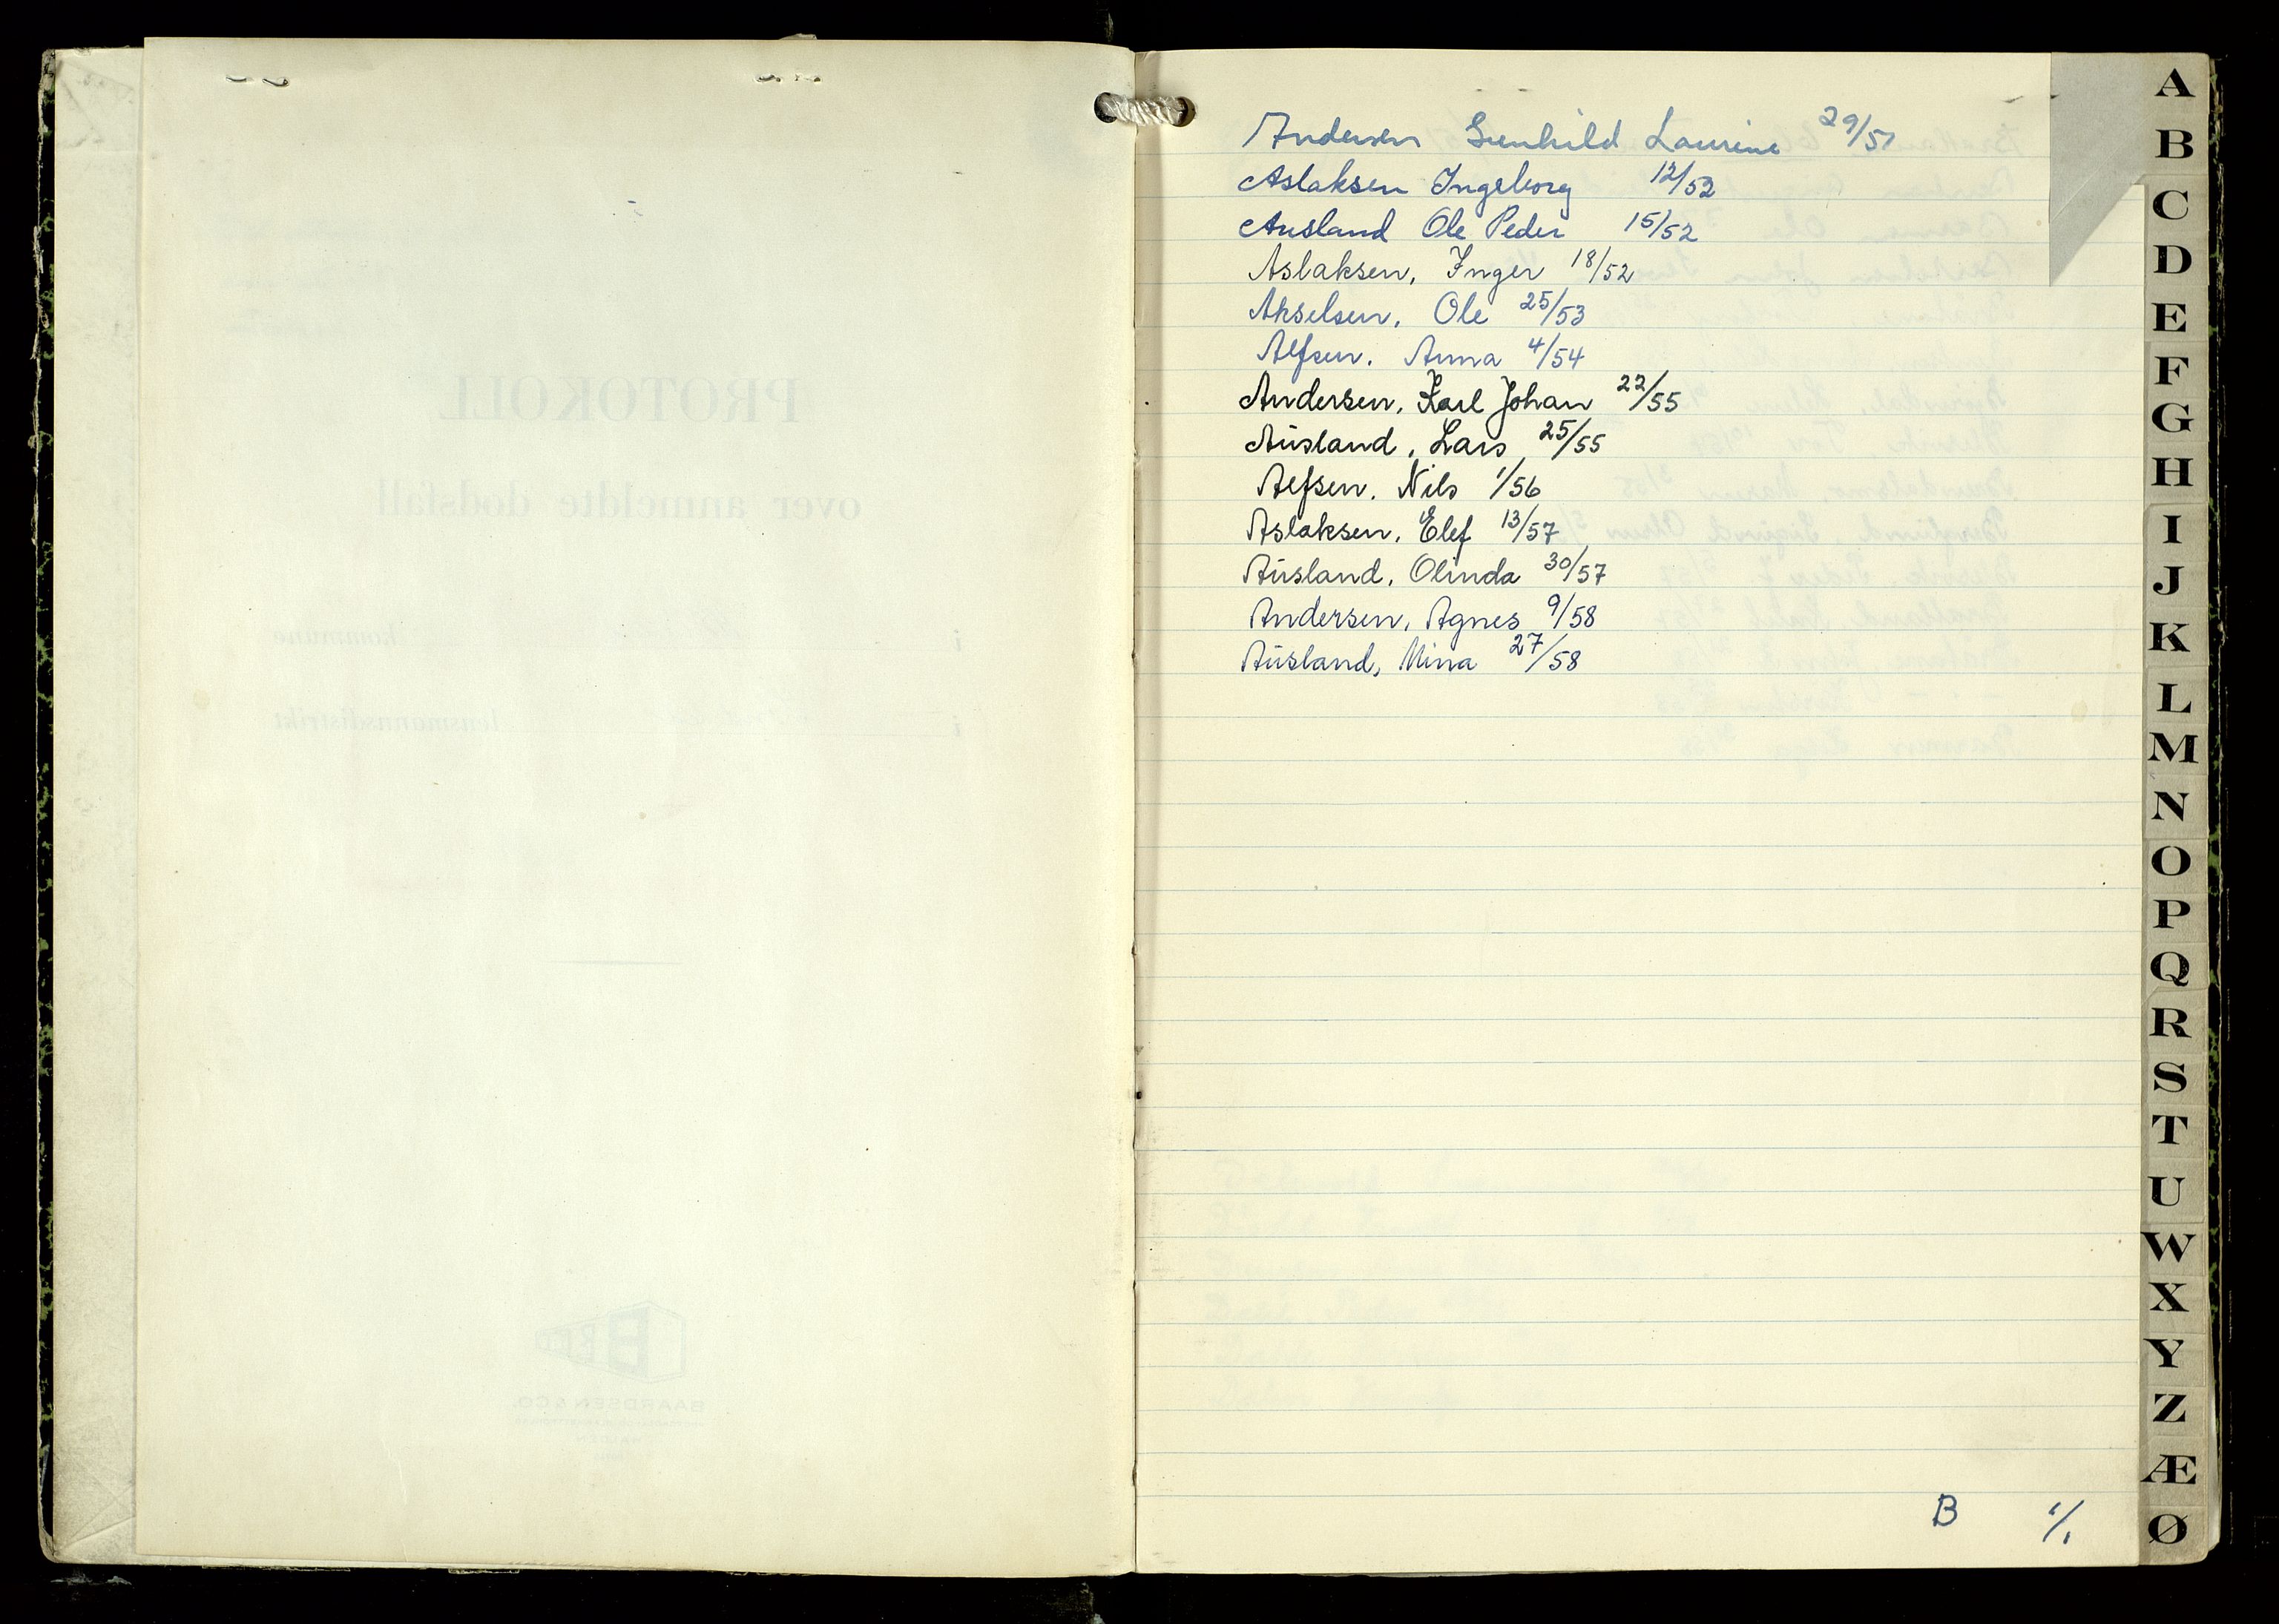 Andersen Gunhild Laurine 29/51
Aslaksen Ingeborg 12/52
Ausland Ole Peder 15/52
Aslaksen, Inger 18/52
Akselsen, Ole 25/53
Alfsen, Anna 4/54
Andersen, Karl Johan 22/55
Ausland, Lars 25/55
Alfsen, Nils 1/56
Aslaksen, Elef 13/57
Ausland, Olinda 30/57
Andersen, Agnes 9/58
Ausland, Mina 27/58
B 1/1
A
B
C
D
E
F
G
H
I
J
K
L
M
N
O
P
Q
R
S
T
U
W
X
Y
Z
Æ
Ø
PROTOKOLL
over anmeldte dødsfall
i kommune
i lensmannsdistrikt
BAARDSEN & CO.